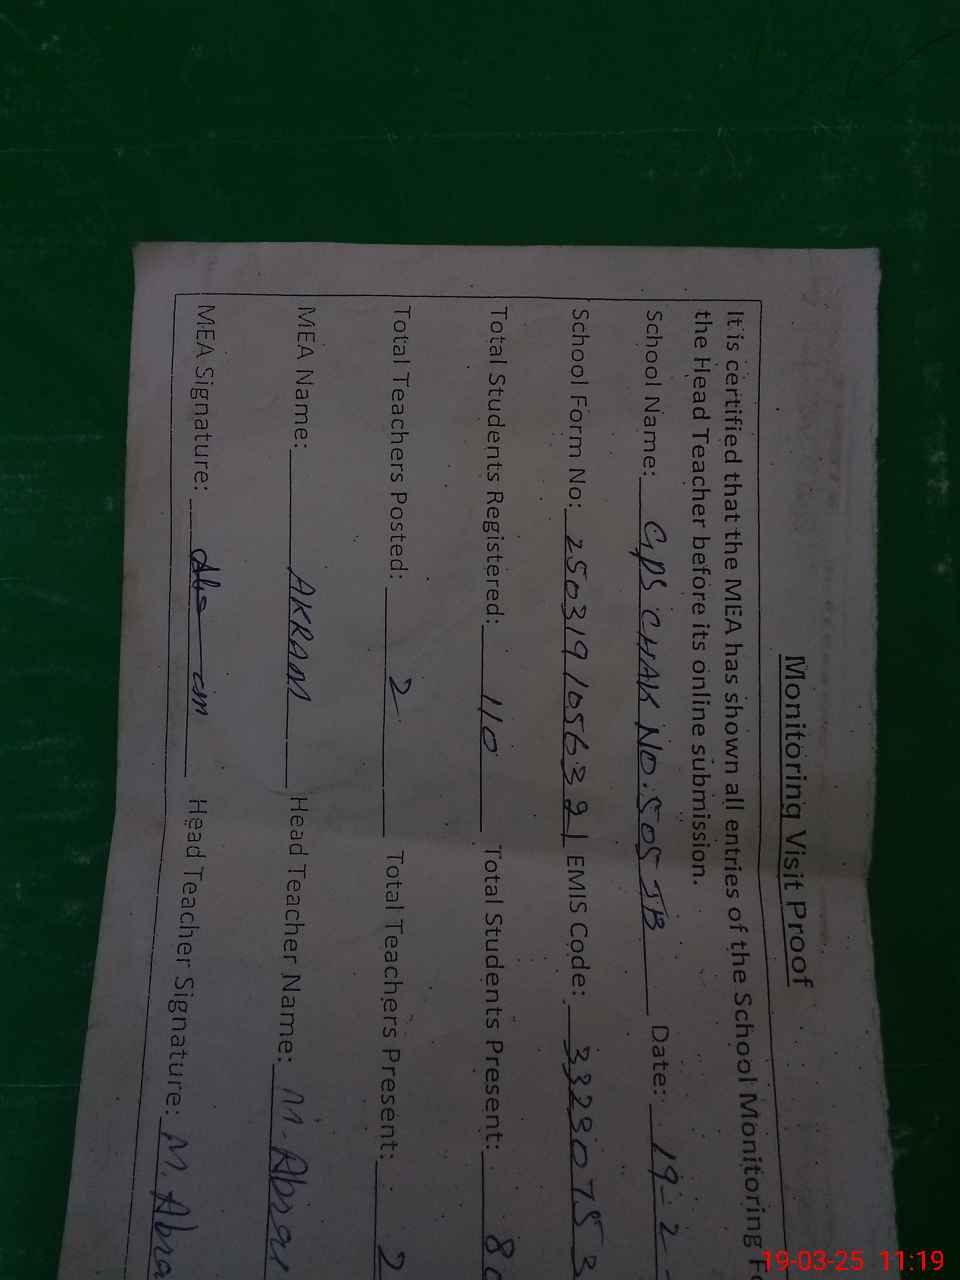 Monitoring Visit Proof
It is certified that the MEA has shown all entries of the School Monitoring
the Head Teacher before its online submission.
School Name: GPS CHAK NO. 505 JB Date: 19-2
School Form No: 25031910563 21 EMIS Code: 3323075
Total Students Registered: 110 Total Students Present: 8
Total Teachers Posted: 2 Total Teachers Present: 2
MEA Name: AKRAM Head Teacher Name: M.
MEA Signature: Head Teacher Signature: M.
19-03-25 11:19